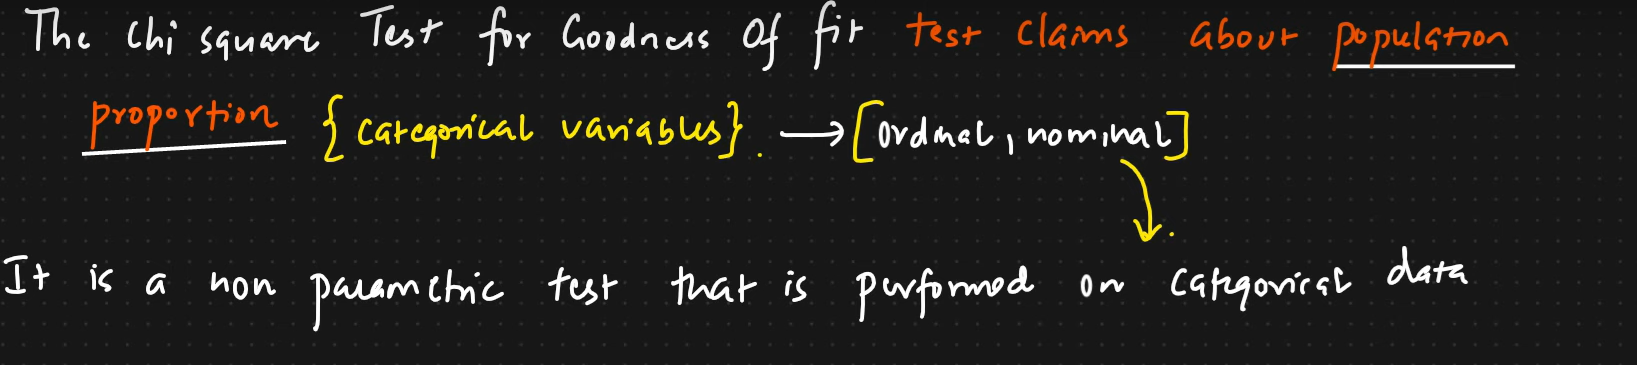 The Chi square Test for Goodness Of fit test claims about population
proportion {categorical variables}. → [ordinal, nominal]
It is a non parametric test that is performed on categorical data